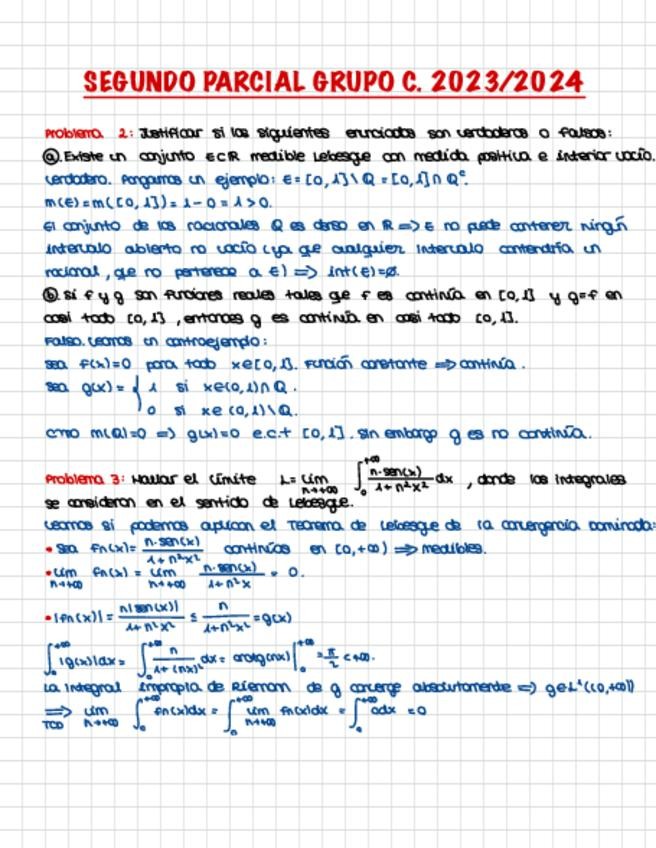 SEGUNDO PARCIAL GRUPO C. 2023/2024
Problema 2: Justificar si los siguientes enunciados son verdaderos o falsos:
ⓐ. Existe un conjunto E⊂ℝ medible Lebesgue con medida positiva e interior vacío.
Verdadero. Pongamos un ejemplo: E = [0,1]\Q = [0,1]∩Qᶜ.
m(E) = m([0,1]) = 1-0 = 1 > 0.
El conjunto de los racionales Q es denso en ℝ ⟹ E no puede contener ningún
intervalo abierto no vacío (ya que cualquier intervalo contendría un
racional, que no pertenece a E) ⟹ int(E)=∅.
ⓑ. Si f y g son funciones reales tales que f es continua en [0,1] y g=f en
casi todo [0,1], entonces g es continua en casi todo [0,1].
Falso. Veamos un contraejemplo:
Sea f(x)=0 para todo x∈[0,1]. Función constante ⟹ continua.
Sea g(x) = { 1 si x∈(0,1)∩Q.
0 si x∈(0,1)\Q.
Como m(Q)=0 ⟹ g(x)=0 e.c.t [0,1]. Sin embargo g es no continua.
Problema 3: Hallar el límite L = lim n→+∞ ∫₀^{+∞} n·sen(x)/(1+n²x²) dx, donde las integrales
se consideran en el sentido de Lebesgue.
Veamos si podemos aplicar el Teorema de Lebesgue de la convergencia dominada:
• Sea fn(x) = n·sen(x)/(1+n²x²) continuas en [0,+∞) ⟹ medibles.
• lim n→+∞ fn(x) = lim n→+∞ n·sen(x)/(1+n²x) = 0.
• |fn(x)| = n|sen(x)|/(1+n²x²) ≤ n/(1+n²x²) = g(x)
∫₀^{+∞} |g(x)|dx = ∫₀^{+∞} n/(1+(nx)²) dx = arctg(nx)|₀^{+∞} = π/2 < +∞.
La integral impropia de Rieman de g converge absolutamente ⟹ g∈L¹((0,+∞))
⟹ TCD lim n→+∞ ∫₀^{+∞} fn(x)dx = ∫₀^{+∞} lim n→+∞ fn(x)dx = ∫₀^{+∞} 0dx = 0